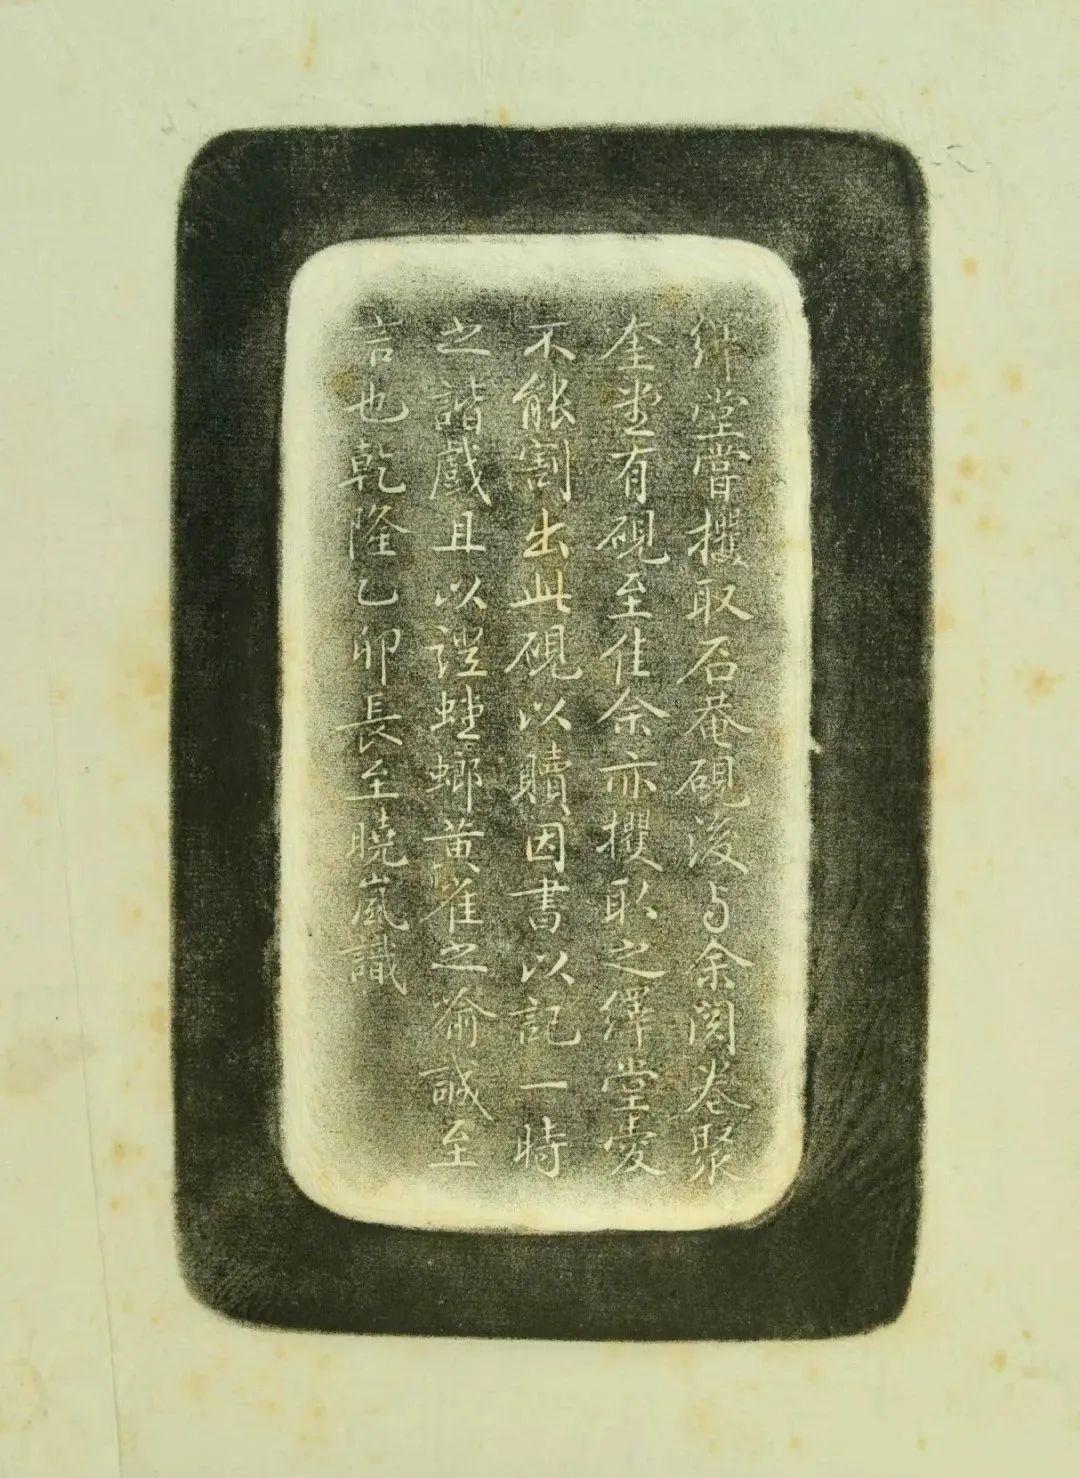 繹堂嘗攫取石菴硯後与余閱卷聚
奎堂有硯至佳余亦攫取之繹堂愛
不能割出此硯以贖因書以記一時
之諧戲且以證螳螂黃雀之喻誠至
言也乾隆乙卯長至曉嵐識